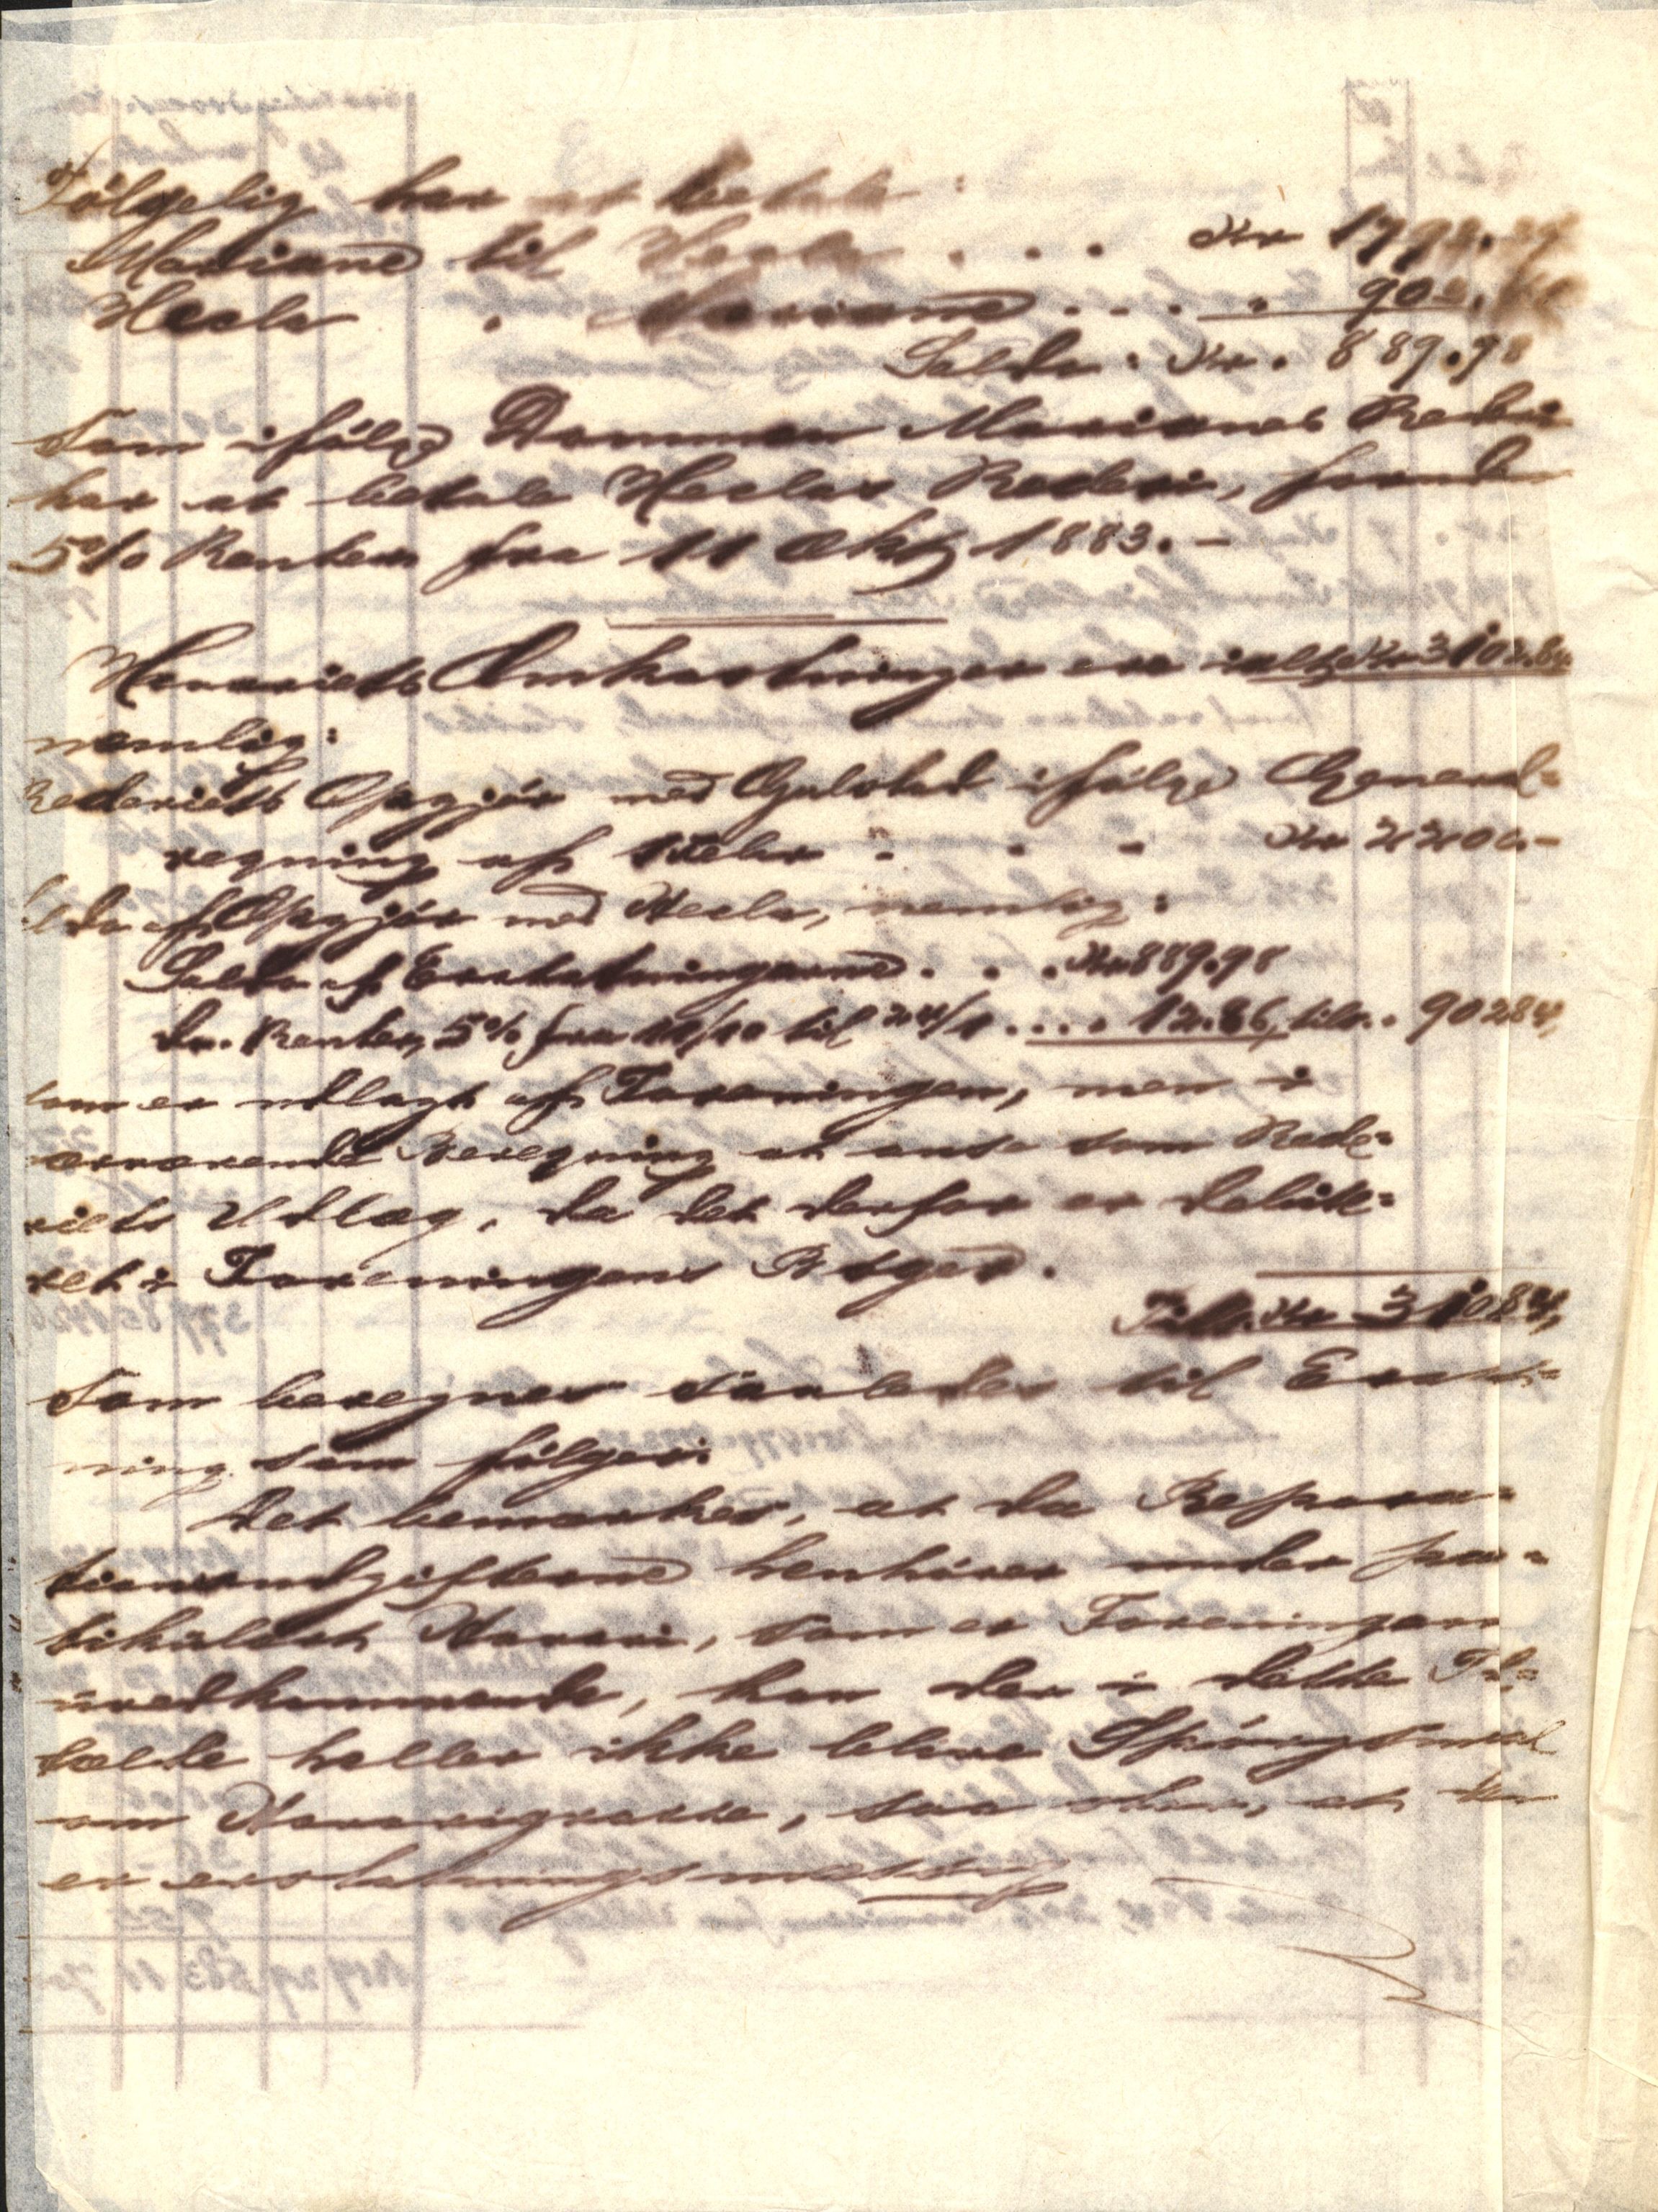 Følgelig har at betale :
Mariane til Hecla . . . Kr 1792.
Hecla " Mariane . . . " 902.
Saldo : Kr. 889.98
Som ifølge Dommen Marianes Rederi
har at betale Heclas Rederi, foruden
5% Renter fra 11 Oktb 1883. –
Havariets Omkostninger ere ialt Kr 3102.84
nemlig:
Rederiets Opgjør med ifølge General=
regning af - - - Kr 2200.–
af Opgjør med Hecla, nemlig:
Saldo af Erstatningerne . . . Kr 889.98
do. Renter, 5% fra 11/10 til 24/1 . . . . 12.86, tils. . 902 84,
som er udlagt af Foreningen, men i
nærværende Beregning at anse som Rede=
riets Udlæg, da det derfor er debite=
ret i Foreningens Bøger.
Tils. Kr 310284,
Som beregnes saaledes til
ning som følger:
Det bemærkes, at da Repara=
tionsudgifterne henhører under par=
tikulært Havari, som er Foreningen
uvedkommende, kan der i dette Til=
fælde heller ikke blive Spørgsmaal
om Havarigrosse, saa at den
er erstatningsmæssig